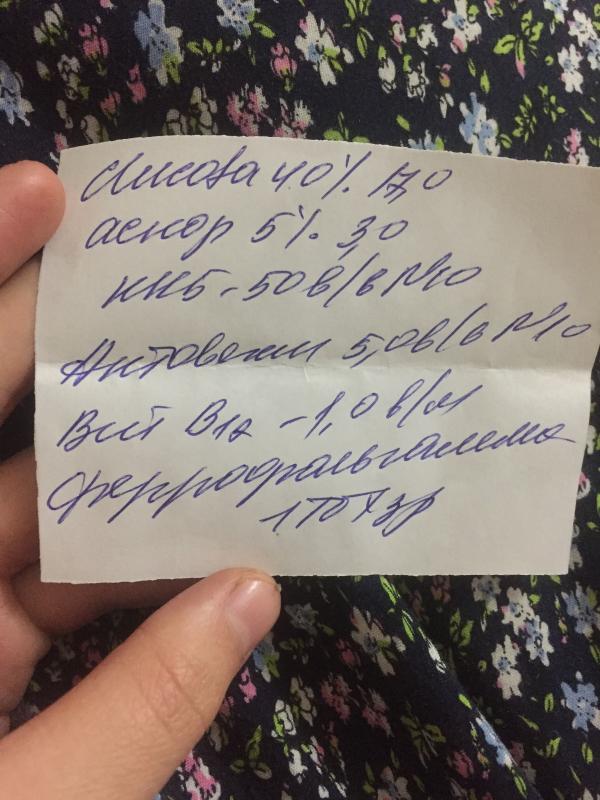 глюкоза 40% 17,0
аскор 5% 3,0
ККБ - 50 в/в №10
Актовегин 5,0 в/в №10
Вит В12 - 1,0 в/м
Феррофольгамма
1т х 3р